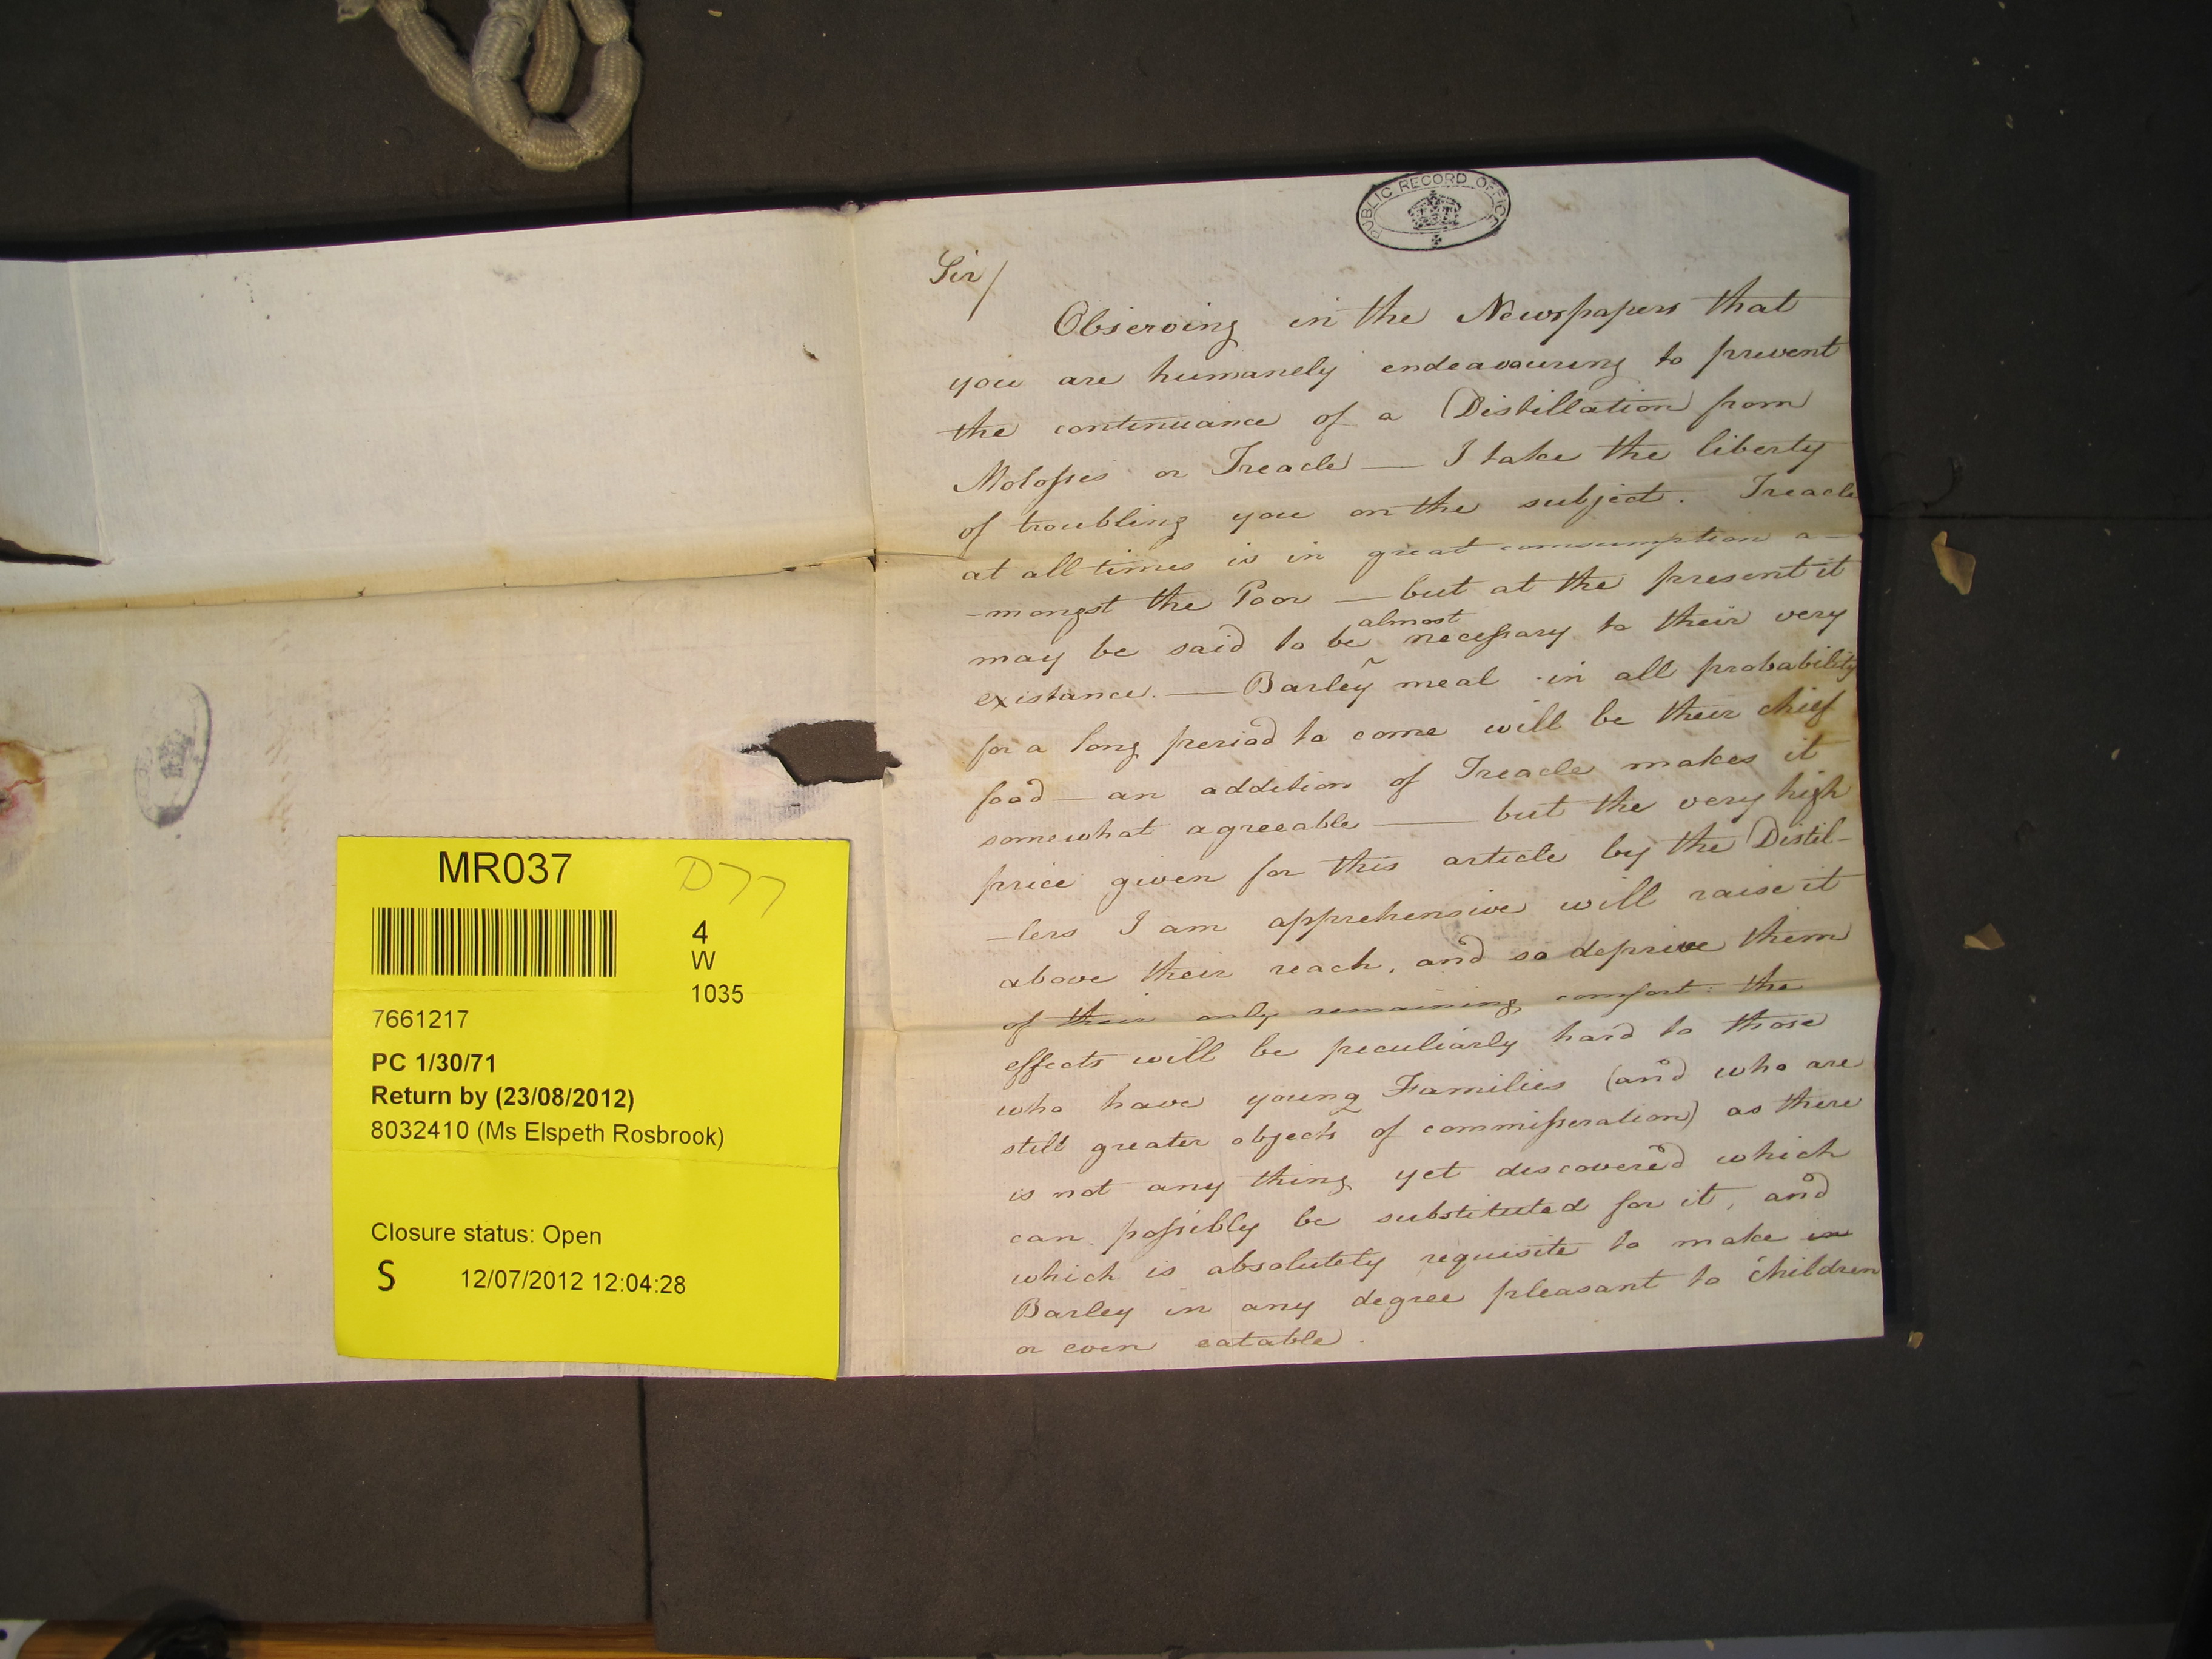 PUBLIC RECORD OFFICE
Sir/
Observing in the Newspapers that
you are humanely endeavouring to prevent
the continuance of a Distillation from
Molosses or Treacle — I take the liberty
of troubling you on the subject. Treacle
at all times is in great comsumption a-
-mongst the Poor — but at the present it
almost
may be said to be necessary to their very
existance. — Barley meal in all probability
for a long period to come will be their chief
food — an addition of Treacle makes it
somewhat agreeable — but the very high
price given for this article by the Distil-
-lers I am apprehensive will raise it
above their reach, and so deprive them
of their only remaining comfort: the
effects will be peculiarly hard to those
who have young Families (and who are
still greater objects of commisseration) as there
is not any thing yet discovered which
can possibly be substituted for it, and
which is absolutely requisite to make in
Barley in any degree pleasant to Children
or even eatable.
MR037
D77
4
W
1035
7661217
PC 1/30/71
Return by (23/08/2012)
8032410 (Ms Elspeth Rosbrook)
Closure status: Open
S 12/07/2012 12:04:28